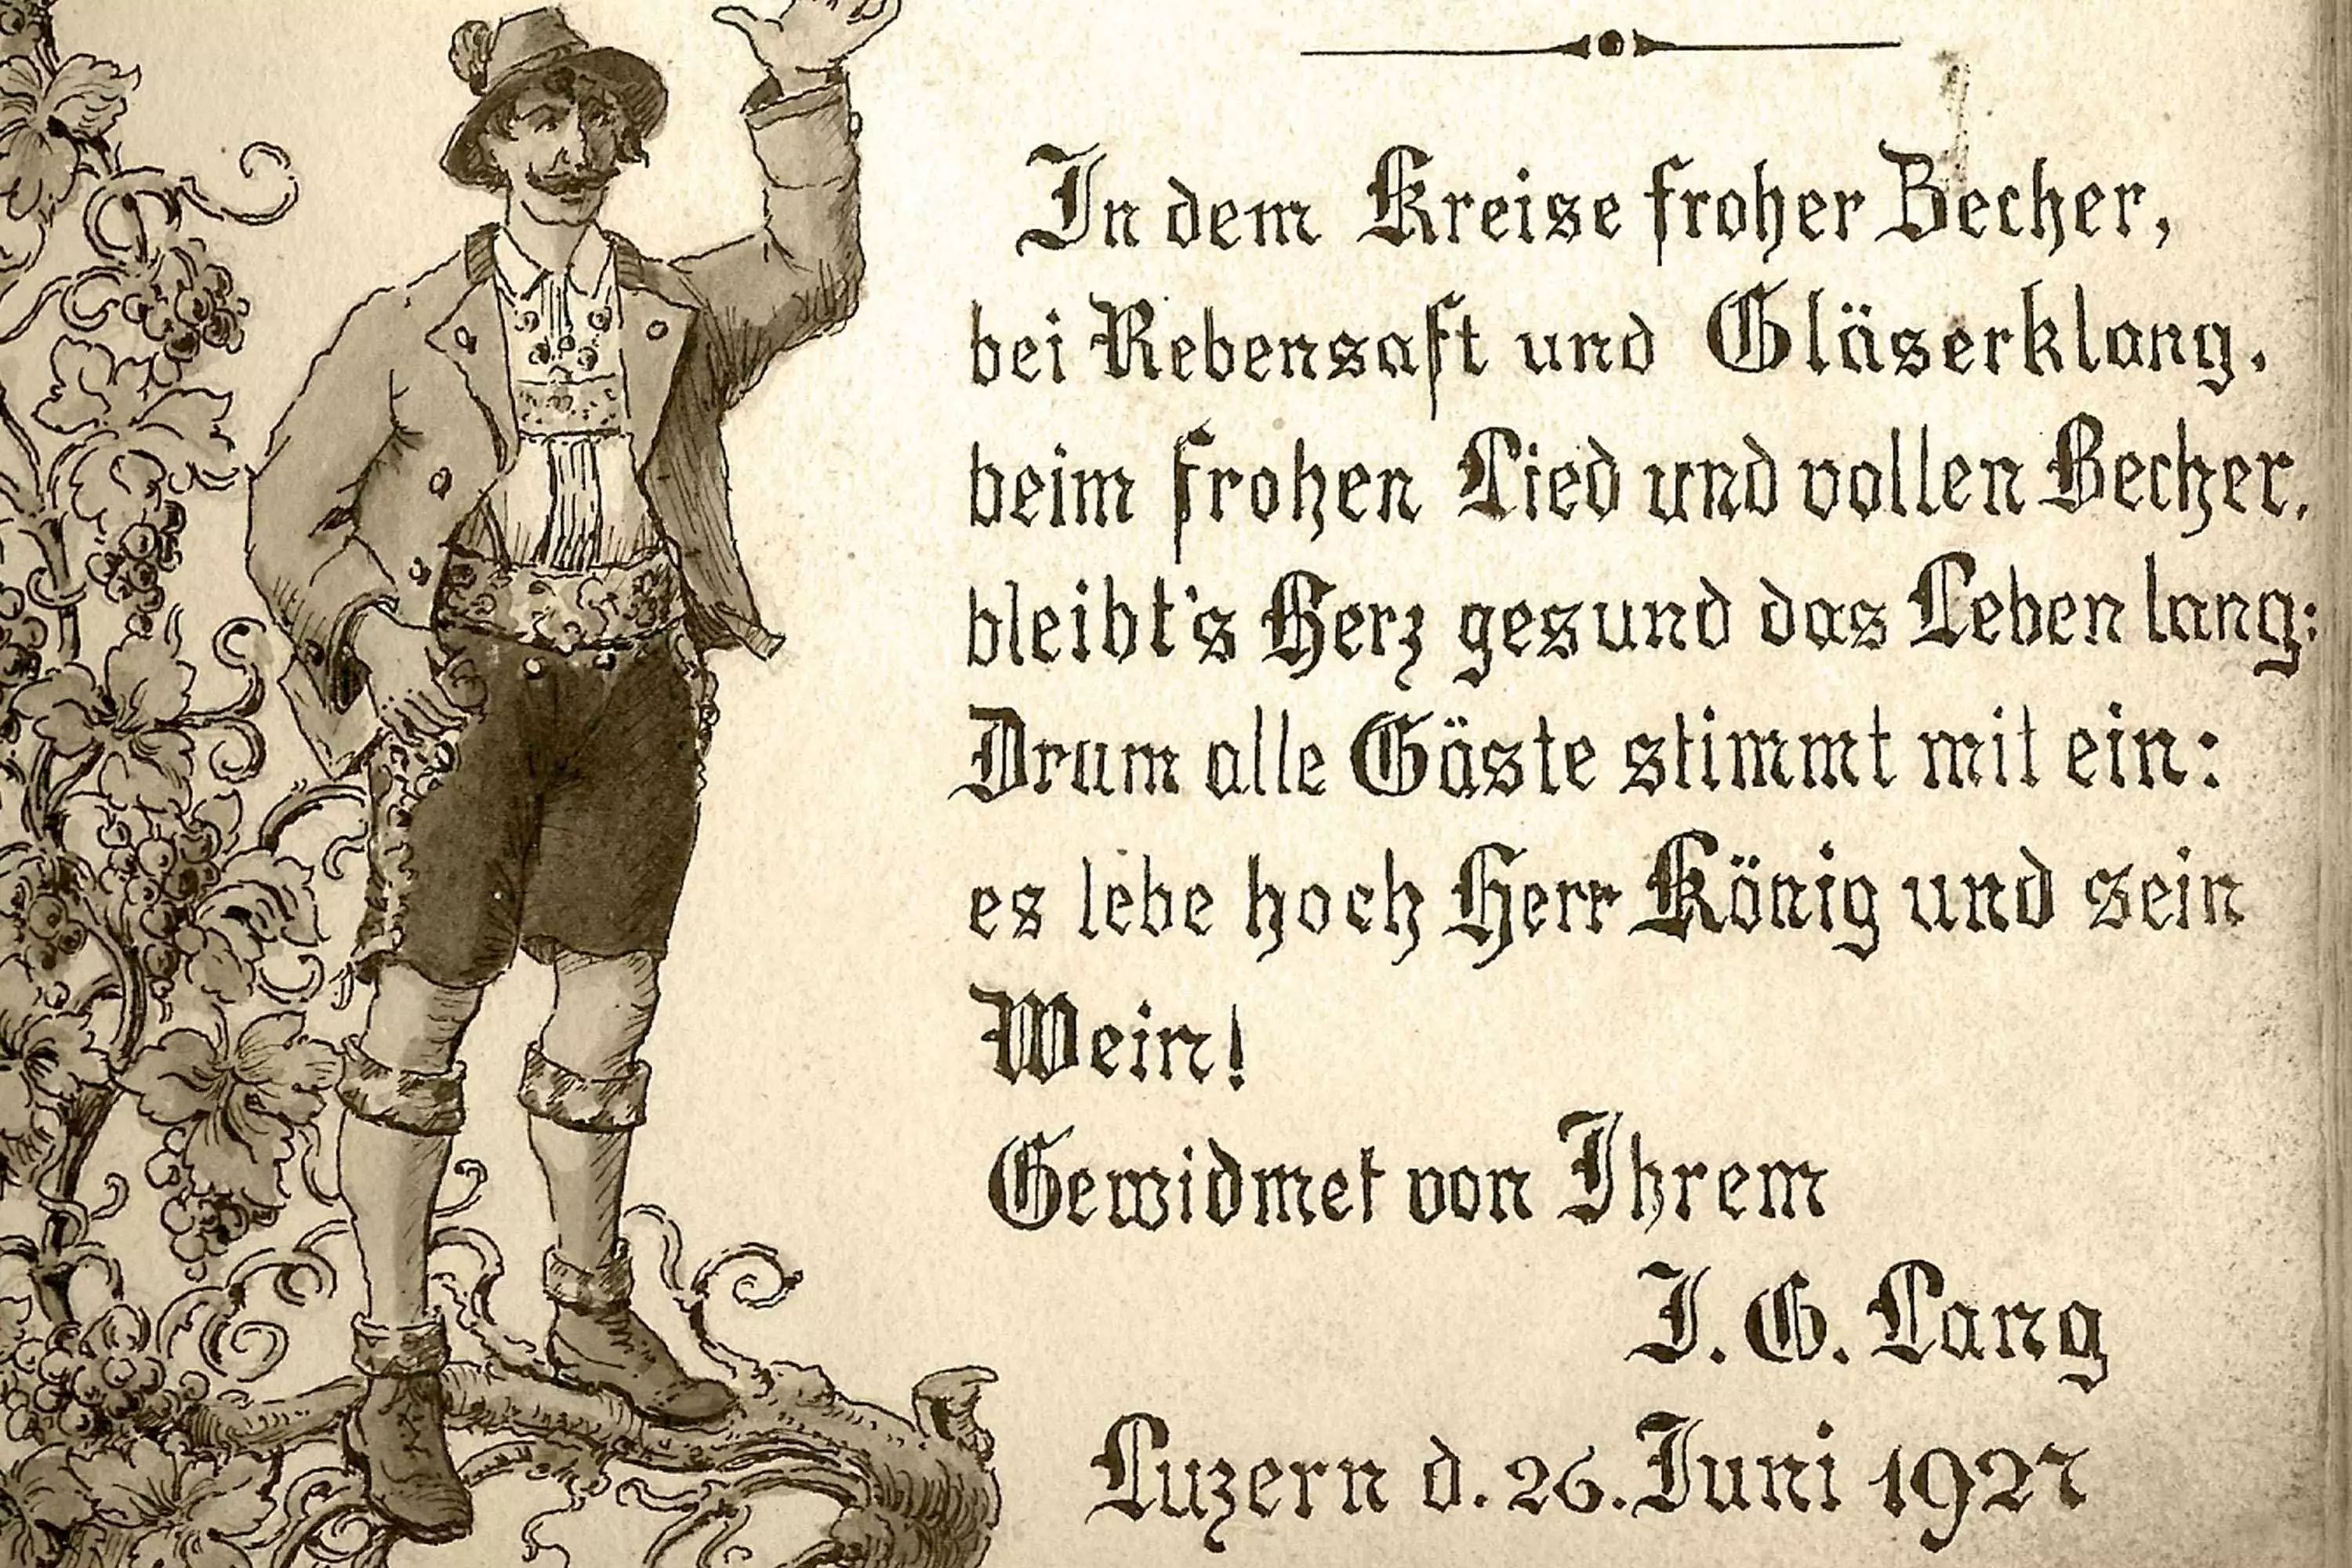 In dem Kreise froher Becher,
bei Rebensaft und Gläserklang.
beim frohen Lied und vollen Becher.
bleibt's Herz gesund das Leben lang:
Drum alle Gäste stimmt mit ein:
es lebe hoch Herr König und sein
Wein!
Gewidmet von Ihrem
I. G. Lang
Luzern d. 26. Juni 1927